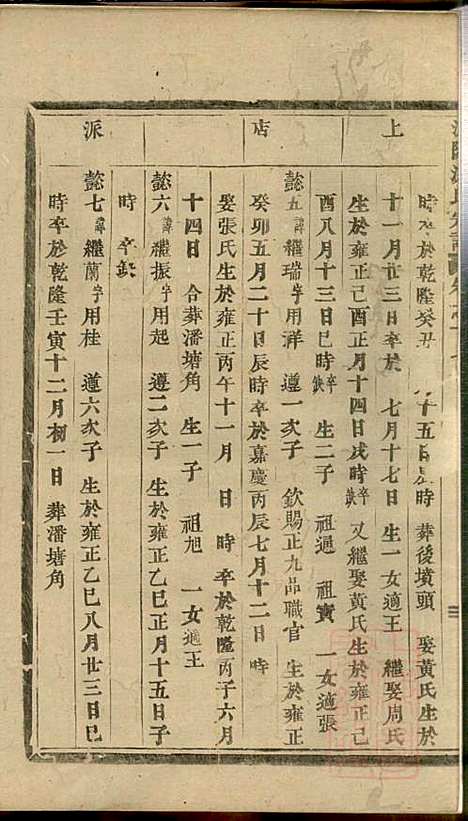 時卒於乾隆癸丑 十五日 時 葬後墳頭 娶黃氏生於
上 十一月廿三日卒於 七月十七日 生一女適王 繼娶周氏
生於雍正己酉正月十四日戌時卒缺 又繼娶黃氏生於雍正己
酉八月十三日巳時卒缺 生二子 祖通 祖寶 一女適張
懿五諱繼瑞字用祥 遵一次子 欽賜正九品職官 生於雍正
店 癸卯五月二十日辰時卒於嘉慶丙辰七月十二日 時
娶張氏生於雍正丙午十一月 日 時 卒於乾隆丙子六月
十四日 合葬潘塘角 生一子 祖旭 一女適王
懿六諱繼振字用起 遵二次子 生於雍正乙巳正月十五日子
時 卒缺
派 懿七諱繼蘭字用桂 遵六次子 生於雍正乙巳八月廿三日巳
時卒於乾隆壬寅十二月初一日 葬潘塘角